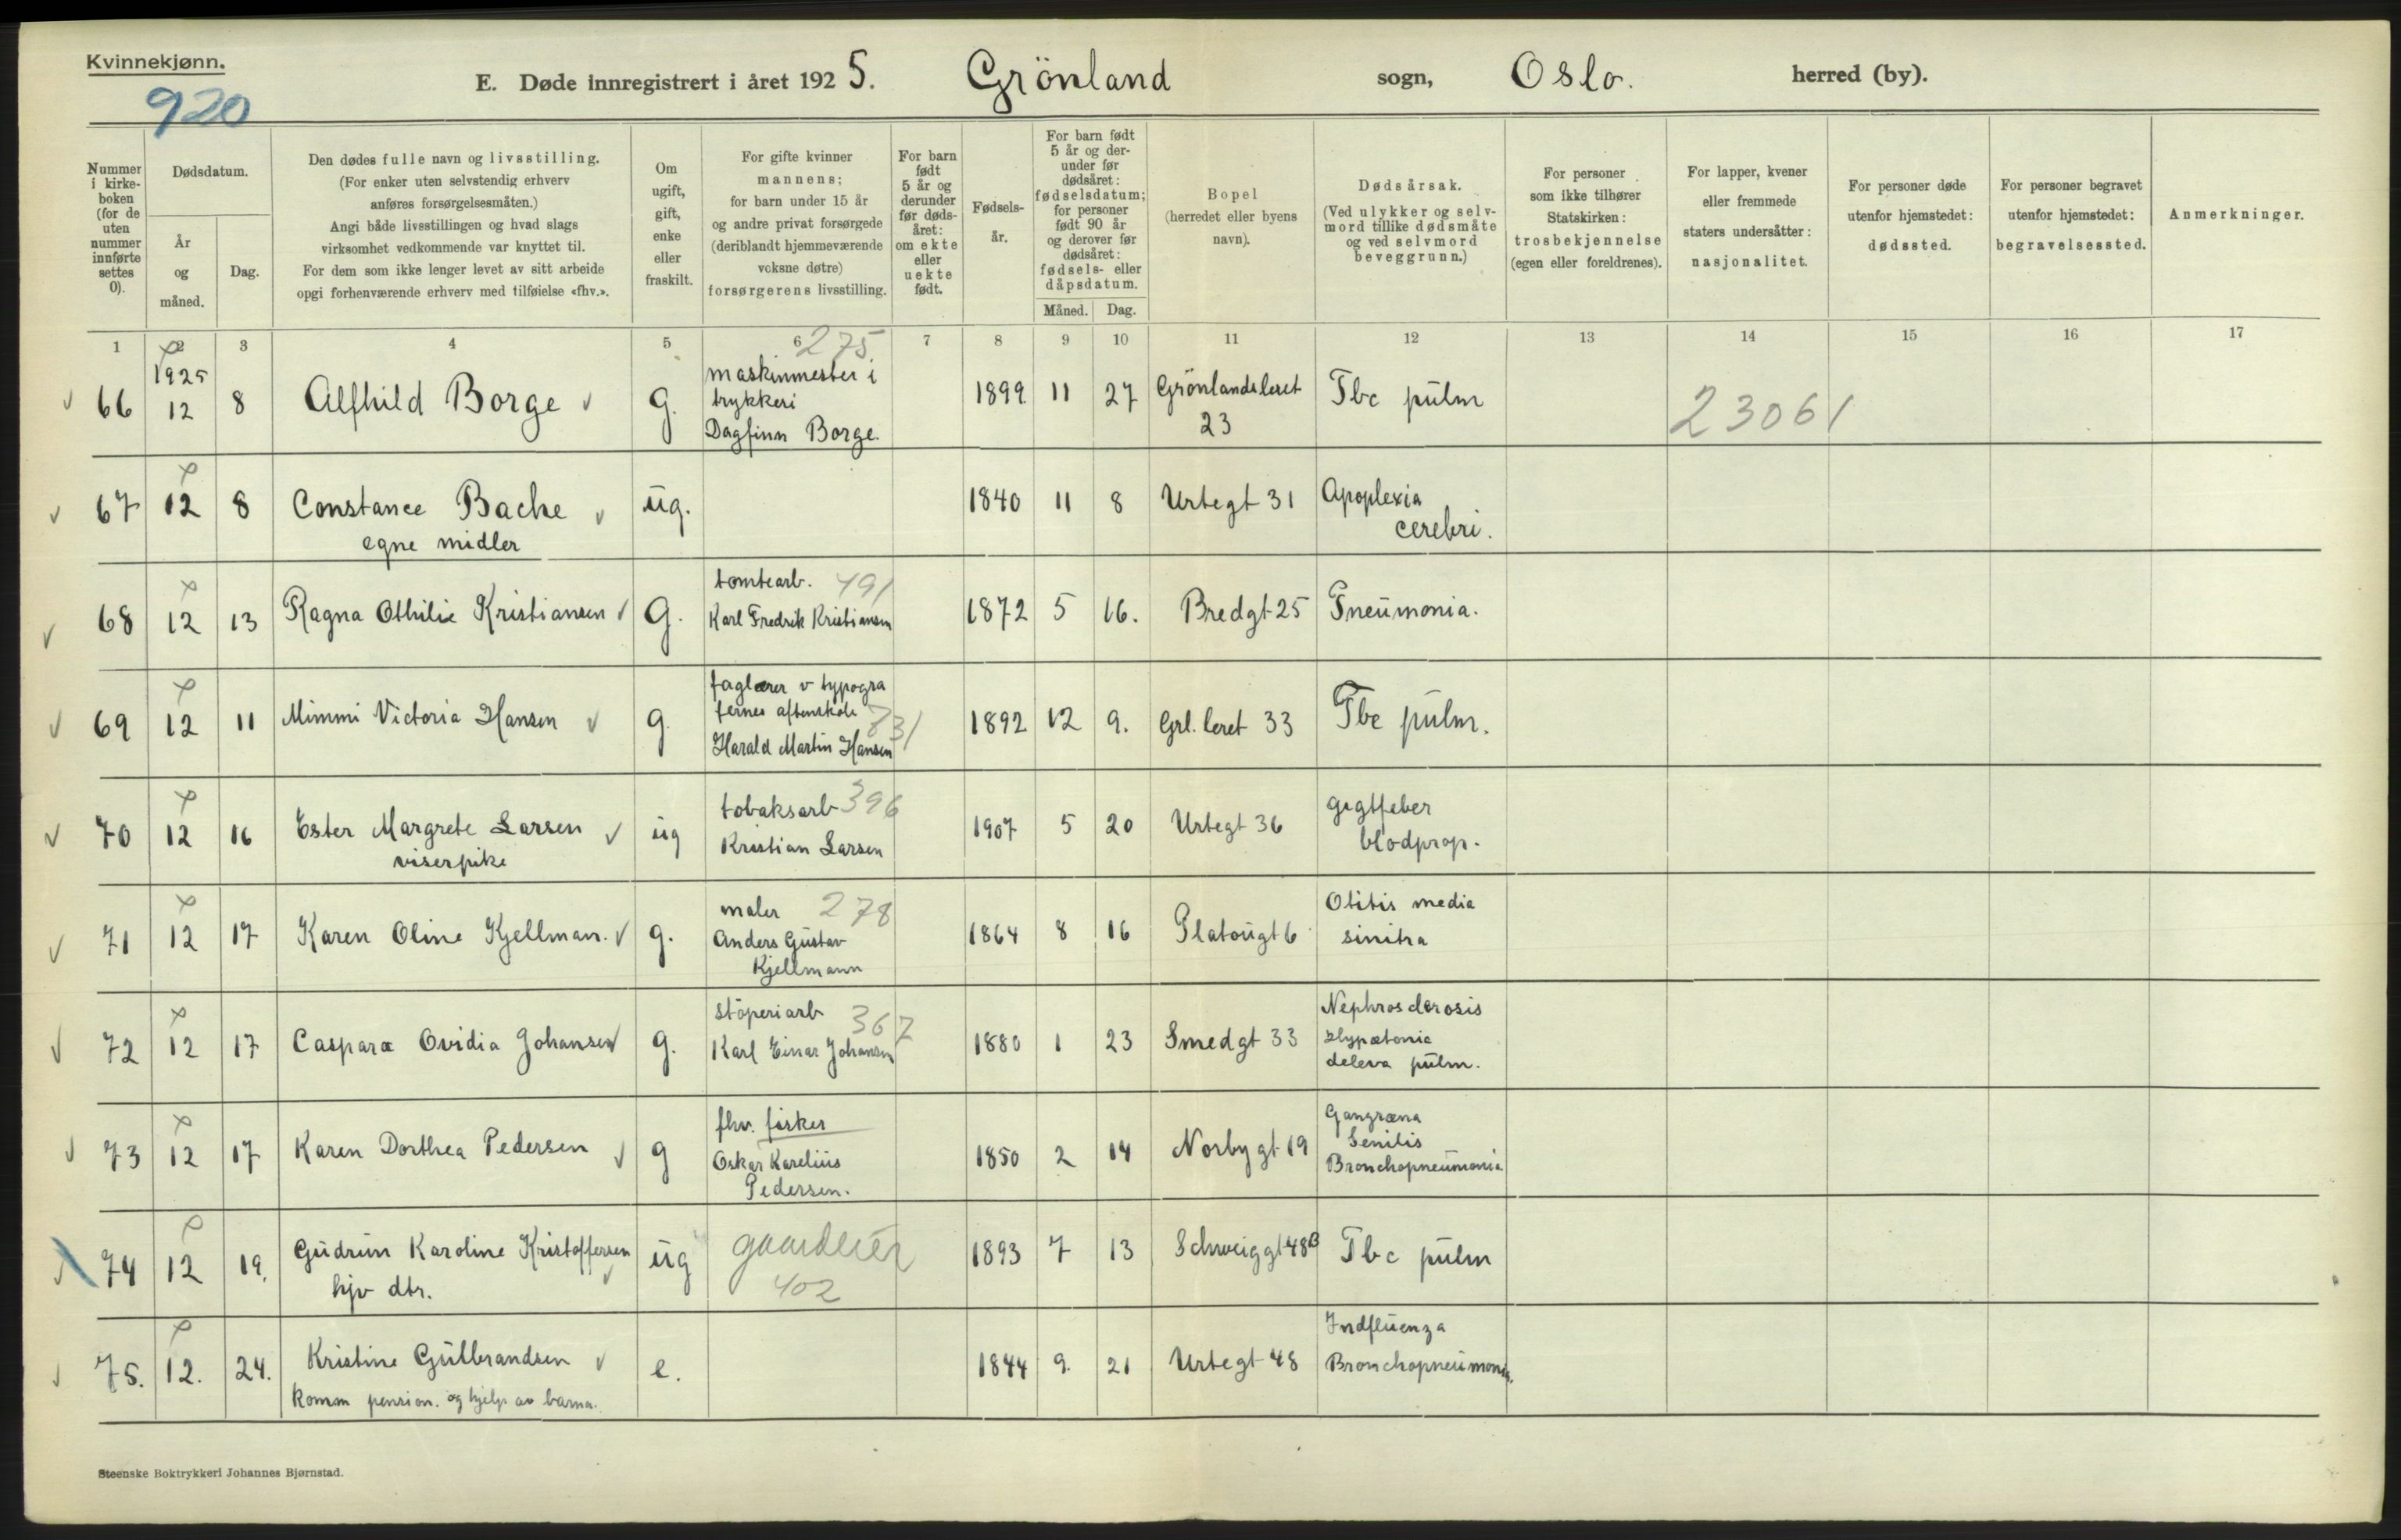 Kvinnekjønn.
920
E. Døde innregistrert i året 1925. Grönland sogn, Oslo. herred (by).
Nummer i kirke-boken (for de uten nummer innførte settes 0).
Dødsdatum.
År og måned.
Dag.
Den dødes fulle navn og livsstilling.
(For enker uten selvstendig erhverv
anføres forsørgelsesmåten.)
Angi både livsstillingen og hvad slags
virksomhet vedkommende var knyttet til.
For dem som ikke lenger levet av sitt arbeide
opgi forhenværende erhverv med tilføielse «fhv.».
Om ugift, gift, enke eller fraskilt.
For gifte kvinner
mannens;
for barn under 15 år
og andre privat forsørgede
(deriblandt hjemmeværende
voksne døtre)
forsørgerens livsstilling.
For barn født 5 år og derunder før døds-året: om ekte eller uekte født.
Fødsels-år.
For barn født
5 år og der-
under før
dødsåret:
fødselsdatum;
for personer
født 90 år
og derover før
dødsåret:
fødsels- eller
dåpsdatum.
Måned. Dag.
Bopel
(herredet eller byens
navn).
Dødsårsak.
(Ved ulykker og selv-
mord tillike dødsmåte
og ved selvmord
beveggrunn.)
For personer
som ikke tilhører
Statskirken:
trosbekjennelse
(egen eller foreldrenes).
For lapper, kvener
eller fremmede
staters undersåtter:
nasjonalitet.
For personer døde
utenfor hjemstedet:
dødssted.
For personer begravet
utenfor hjemstedet:
begravelsessted.
Anmerkninger.
1 2 3 4 5 6 7 8 9 10 11 12 13 14 15 16 17
275
66 1925 12 8 Alfhild Borge g. maskinmester i
trykkeri
Dagfinn Borge. 1899 11 27 Grönlandsleret
23 Tbc pulm 23061
67 12 8 Constance Bache
egne midler ug. 1840 11 8 Urtegt 31 Apoplexia
cerebri.
68 12 13 Ragna Othilie Kristiansen g. tomtearb. 491
Karl Fredrik Kristiansen 1872 5 16. Bredgt 25 Pneumonia.
69 12 11 Mimmi Victoria Hansen g. faglærer v typogra
fernes aftenskole 731
Harald Martin Hansen 1892 12 9. Grl. leret 33 Tbc pulm.
70 12 16 Ester Margrete Larsen
viserpike ug tobaksarb 396
Kristian Larsen 1907 5 20 Urtegt 36 gigtfeber
blodprop.
71 12 17 Karen Oline Kjellman. g. maler 278
Anders Gustav
Kjellmann 1864 8 16 Platougt 6 Otitis media
sinitra
72 12 17 Caspara Ovidia Johansen g. støperiarb 367
Karl Einar Johansen 1880 1 23 Smedgt 33 Nephrosclerosis
Hypætonia
deleva pulm.
73 12 17 Karen Dorthea Pedersen g fhv. fisker
Oskar Karelius
Pedersen. 1850 2 14 Norbygt 19 Gangræna
Senilis
Bronchopneumonia
74 12 19. Gudrun Karoline Kristoffersen
hjv dtr. ug gaardeier
402 1893 7 13 Schweiggt 48B Tbc pulm
75. 12. 24. Kristine Gulbrandsen
Komm pension. og hjelp av barna. e. 1844 9. 21 Urtegt 48 Indfluenza
Bronchopneumonia.
Steenske Boktrykkeri Johannes Bjørnstad.